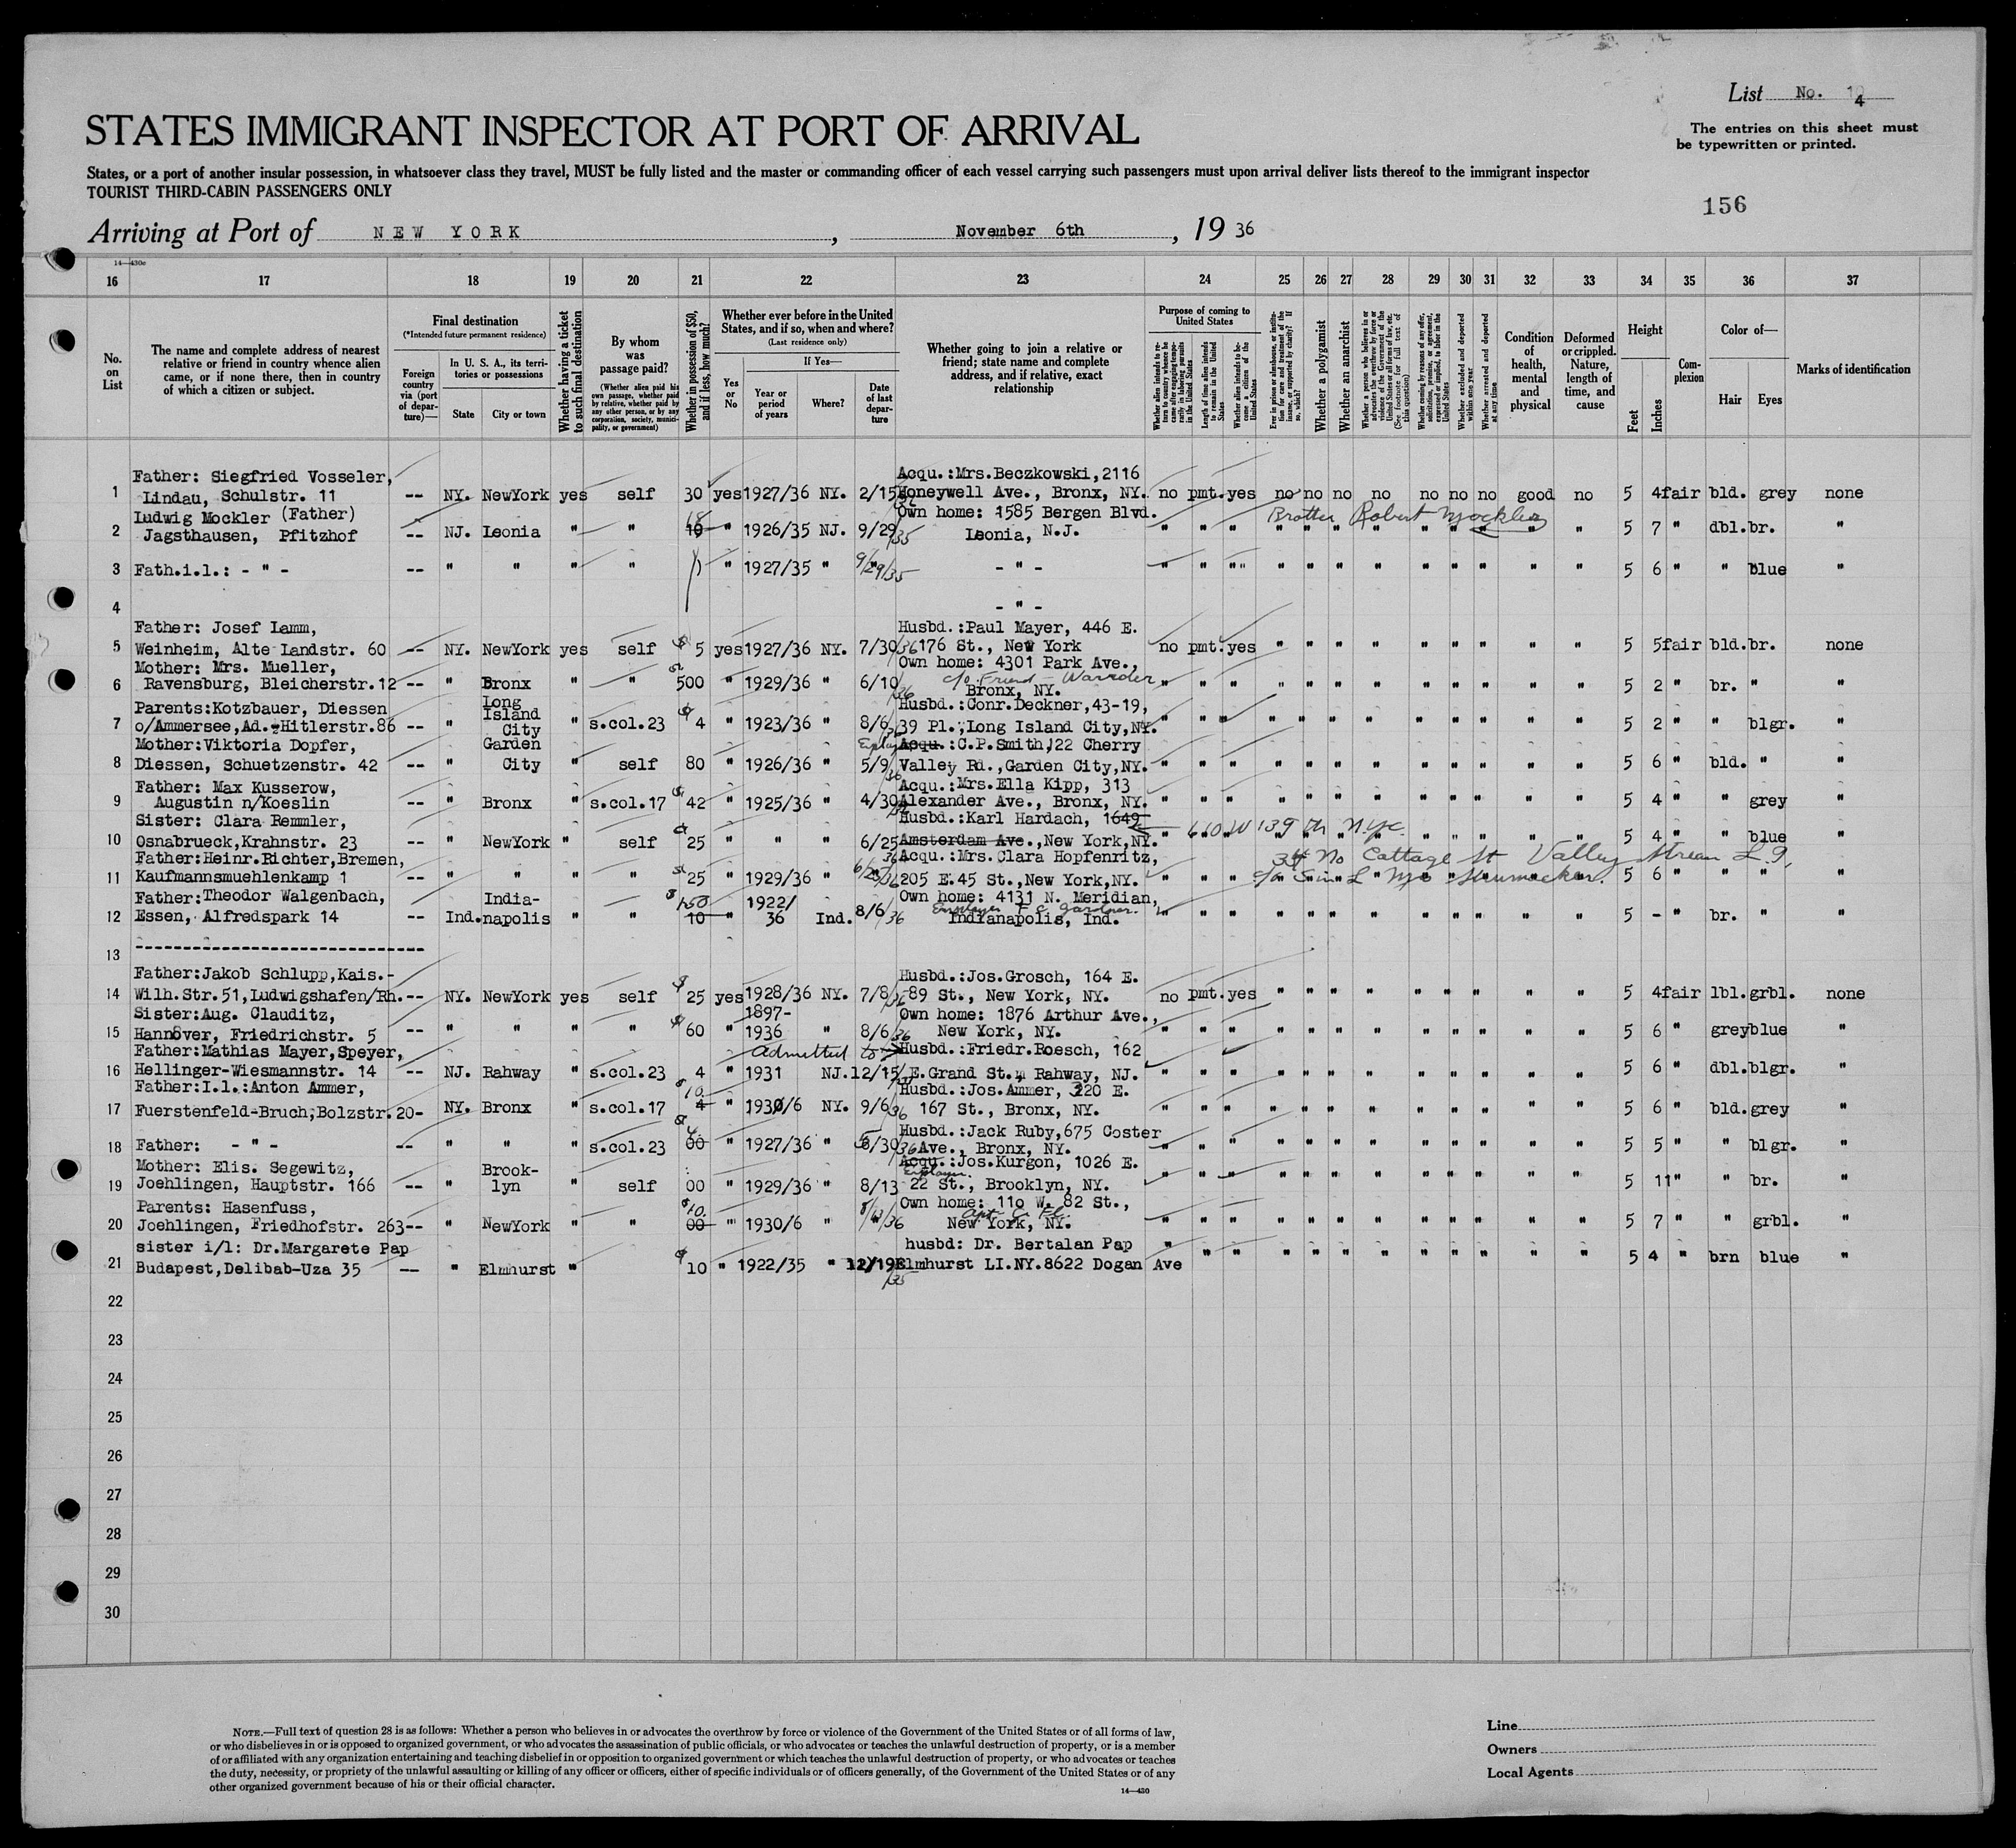 List No. 4
The entries on this sheet must
be typewritten or printed.
STATES IMMIGRANT INSPECTOR AT PORT OF ARRIVAL
States, or a port of another insular possession, in whatsoever class they travel, MUST be fully listed and the master or commanding officer of each vessel carrying such passengers must upon arrival deliver lists thereof to the immigrant inspector
TOURIST THIRD-CABIN PASSENGERS ONLY
156
Arriving at Port of NEW YORK, November 6th, 1936
14—430c
16 17 18 19 20 21 22 23 24 25 26 27 28 29 30 31 32 33 34 35 36 37
No. on List
The name and complete address of nearest relative or friend in country whence alien came, or if none there, then in country of which a citizen or subject.
Final destination
(*Intended future permanent residence)
Foreign country via (port of departure)—
In U. S. A., its territories or possessions
State
City or town
Whether having a ticket to such final destination
By whom was passage paid?
(Whether alien paid his own passage, whether paid by relative, whether paid by any other person, or by any corporation, society, municipality, or government)
Whether in possession of $50, and if less, how much?
Whether ever before in the United States, and if so, when and where?
(Last residence only)
Yes or No
If Yes—
Year or period of years
Where?
Date of last departure
Whether going to join a relative or friend; state name and complete address, and if relative, exact relationship
Purpose of coming to United States
Whether alien intends to return to country whence he came after engaging temporarily in laboring pursuits in the United States
Length of time alien intends to remain in the United States
Whether alien intends to become a citizen of the United States
Ever in prison or almshouse, or institution for care and treatment of the insane, or supported by charity? If so, which?
Whether a polygamist
Whether an anarchist
Whether a person who believes in or advocates the overthrow by force or violence of the Government of the United States or all forms of law, etc. (See footnote for full text of this question)
Whether coming by reasons of any offer, solicitation, promise, or agreement, expressed or implied, to labor in the United States
Whether excluded and deported within one year
Whether arrested and deported at any time
Condition of health, mental and physical
Deformed or crippled. Nature, length of time, and cause
Height
Feet
Inches
Complexion
Color of—
Hair
Eyes
Marks of identification
Father: Siegfried Vosseler, Acqu.:Mrs.Beczkowski,2116
1 Lindau, Schulstr. 11 -- NY. NewYork yes self 30 yes 1927/36 NY. 2/15/36 Honeywell Ave., Bronx, NY. no pmt. yes no no no no no no no good no 5 4 fair bld. grey none
Ludwig Mockler (Father) 18 Own home: 1585 Bergen Blvd. Brother Robert Mockler
2 Jagsthausen, Pfitzhof -- NJ. Leonia " " 10 " 1926/35 NJ. 9/29/35 Leonia, N.J. " " " " " " " " " " " " 5 7 " dbl. br. "
3 Fath.i.l.: - " - -- " " " " " 1927/35 " 9/29/35 - " - " " " " " " " " " " " " 5 6 " " blue "
4 - " -
Father: Josef Lamm, Husbd.:Paul Mayer, 446 E.
5 Weinheim, Alte Landstr. 60 -- NY. NewYork yes self $ 5 yes 1927/36 NY. 7/30/36 176 St., New York no pmt. yes " " " " " " " " " 5 5 fair bld. br. none
Mother: Mrs. Mueller, Own home: 4301 Park Ave.,
6 Ravensburg, Bleicherstr.12 -- " Bronx " " 500 " 1929/36 " 6/10/36 c/o Friend Bronx, NY. " " " " " " " " " " " " 5 2 " br. " "
Parents:Kotzbauer, Diessen Long Island Husbd.:Conr.Deckner,43-19,
7 o/Ammersee,Ad.-Hitlerstr.86 -- " City " s.col.23 $ 4 " 1923/36 " 8/6/36 39 Pl.,Long Island City,NY. " " " " " " " " " " " " 5 2 " " blgr. "
Mother:Viktoria Dopfer, Garden Acqu.:C.P.Smith,122 Cherry
8 Diessen, Schuetzenstr. 42 -- " City " self 80 " 1926/36 " 5/9/36 Valley Rd.,Garden City,NY. " " " " " " " " " " " " 5 6 " bld. " "
Father: Max Kusserow, Acqu.:Mrs.Ella Kipp, 313
9 Augustin n/Koeslin -- " Bronx " s.col.17 $ 42 " 1925/36 " 4/30/36 Alexander Ave., Bronx, NY. " " " " " " " " " " " " 5 4 " " grey "
Sister: Clara Remmler, Husbd.:Karl Hardach, 1649 610 W 139 th N.Y.C.
10 Osnabrueck,Krahnstr. 23 -- " NewYork " self $ 25 " " " 6/25/36 Amsterdam Ave.,New York,NY. " " " " " " " " " " " " 5 4 " " blue "
Father:Heinr.Richter,Bremen, Acqu.:Mrs.Clara Hopfenritz, 34 No Cottage St Valley Stream L.I.
11 Kaufmannsmuehlenkamp 1 -- " " " " $ 25 " 1929/36 " 6/25/36 205 E.45 St.,New York,NY. " " " " " " " " " " " " 5 6 " " " "
Father:Theodor Walgenbach, India- $ 150 1922/ Own home: 4131 N. Meridian,
12 Essen, Alfredspark 14 -- Ind. napolis " " 10 " 36 Ind. 8/6/36 Employer F C Gardner. Indianapolis, Ind. " " " " " " " " " " " " 5 - " br. " "
13 ------------------------------
Father:Jakob Schlupp,Kais.- Husbd.:Jos.Grosch, 164 E.
14 Wilh.Str.51,Ludwigshafen/Rh.-- NY. NewYork yes self $ 25 yes 1928/36 NY. 7/8/36 89 St., New York, NY. no pmt. yes " " " " " " " " " 5 4 fair lbl. grbl. none
Sister:Aug. Clauditz, 1897- Own home: 1876 Arthur Ave.,
15 Hannover, Friedrichstr. 5 -- " " " " $ 60 " 1936 " 8/6/36 New York, NY. " " " " " " " " " " " " 5 6 " grey blue "
Father:Mathias Mayer,Speyer, Admitted to US Husbd.:Friedr.Roesch, 162
16 Hellinger-Wiesmannstr. 14 -- NJ. Rahway " s.col.23 4 " 1931 NJ. 12/15/ E.Grand St., Rahway, NJ. " " " " " " " " " " " 5 6 " dbl. blgr. "
Father:I.l.:Anton Ammer, $ 10. Husbd.:Jos.Ammer, 320 E.
17 Fuerstenfeld-Bruch,Bolzstr.20- NY. Bronx " s.col.17 4 " 1930/6 NY. 9/6/36 167 St., Bronx, NY. " " " " " " " " " " " " 5 6 " bld. grey "
$ 4 Husbd.:Jack Ruby,675 Coster
18 Father: - " - -- " " " s.col.23 00 " 1927/36 " 6/30/36 Ave., Bronx, NY. " " " " " " " " " " " " 5 5 " " blgr. "
Mother: Elis. Segewitz, Brook- Acqu.:Jos.Kurgon, 1026 E.
19 Joehlingen, Hauptstr. 166 -- " lyn " self 00 " 1929/36 " 8/13 Employer 22 St., Brooklyn, NY. " " " " " " " " " " " " 5 11 " " br. "
Parents: Hasenfuss, $ 10. Own home: 110 W. 82 St.,
20 Joehlingen, Friedhofstr. 263-- " NewYork " " 00 " 1930/6 " 8/13/36 New York, NY. " " " " " " " " " " " " 5 7 " " grbl. "
sister i/l: Dr.Margarete Pap husbd: Dr. Bertalan Pap
21 Budapest,Delibab-Uza 35 -- " Elmhurst " $ 10 " 1922/35 " 12/19/35 Elmhurst LI.NY.8622 Dogan Ave " " " " " " " " " " " " 5 4 " brn blue "
22
23
24
25
26
27
28
29
30
NOTE.—Full text of question 28 is as follows: Whether a person who believes in or advocates the overthrow by force or violence of the Government of the United States or of all forms of law,
or who disbelieves in or is opposed to organized government, or who advocates the assassination of public officials, or who advocates or teaches the unlawful destruction of property, or is a member
of or affiliated with any organization entertaining and teaching disbelief in or opposition to organized government or which teaches the unlawful destruction of property, or who advocates or teaches
the duty, necessity, or propriety of the unlawful assaulting or killing of any officer or officers, either of specific individuals or of officers generally, of the Government of the United States or of any
other organized government because of his or their official character.
14—430
Line
Owners
Local Agents